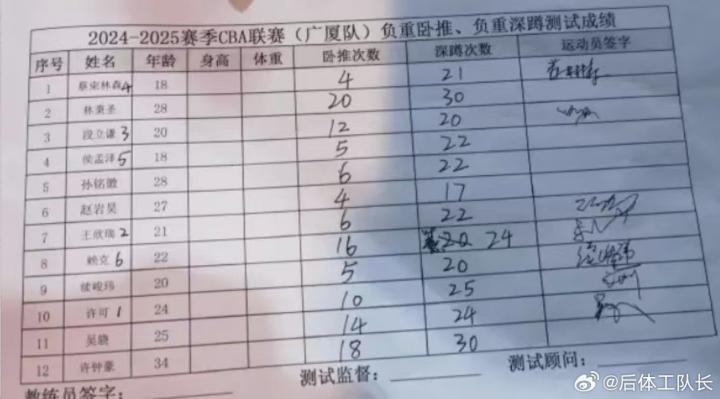 2024-2025赛季CBA联赛（广厦队）负重卧推、负重深蹲测试成绩
序号 姓名 年龄 身高 体重 卧推次数 深蹲次数 运动员签字
1 4 18 4 21
2 林秉圣 28 20 30
3 段立谦 3 20 12 20
4 侯孟泽 5 18 5 22
5 孙铭徽 28 6 22
6 赵岩昊 27 4 17
7 王欣瑞 2 21 6 22
8 赖克 6 22 16 20 24
9 20 5 20
10 许可 1 24 10 25
11 吴骁 25 14 24
12 许钟豪 34 18 30
教练员签字： 测试监督： 测试顾问：
@后体工队长